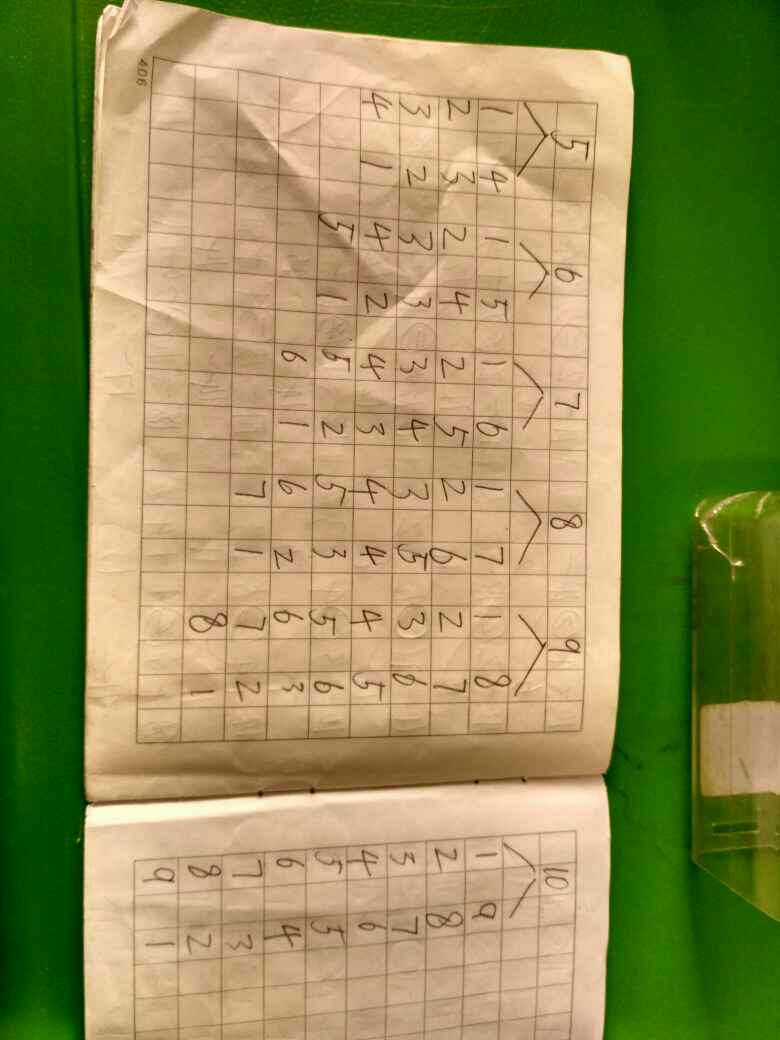 5 6 7 8 9
1 4 1 5 1 6 1 7 1 8
2 3 2 4 2 5 2 6 2 7
3 2 3 3 3 4 3 5 3 6
4 1 4 2 4 3 4 4 4 5
5 1 5 2 5 3 5 6
6 1 6 2 6 3
7 1 7 2
8 1
406
10
1 9
2 8
3 7
4 6
5 5
6 4
7 3
8 2
9 1